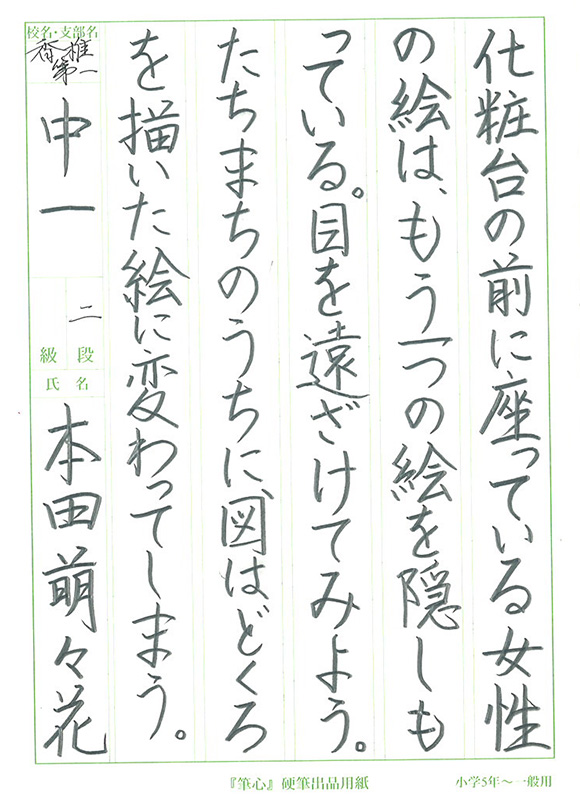 化粧台の前に座っている女性
の絵は、もう一つの絵を隠しも
っている。目を遠ざけてみよう。
たちまちのうちに、図はどくろ
を描いた絵に変わってしまう。
校名・支部名
香椎第一
中一
二
級 段
氏 名
本田萌々花
『筆心』硬筆出品用紙
小学5年〜一般用